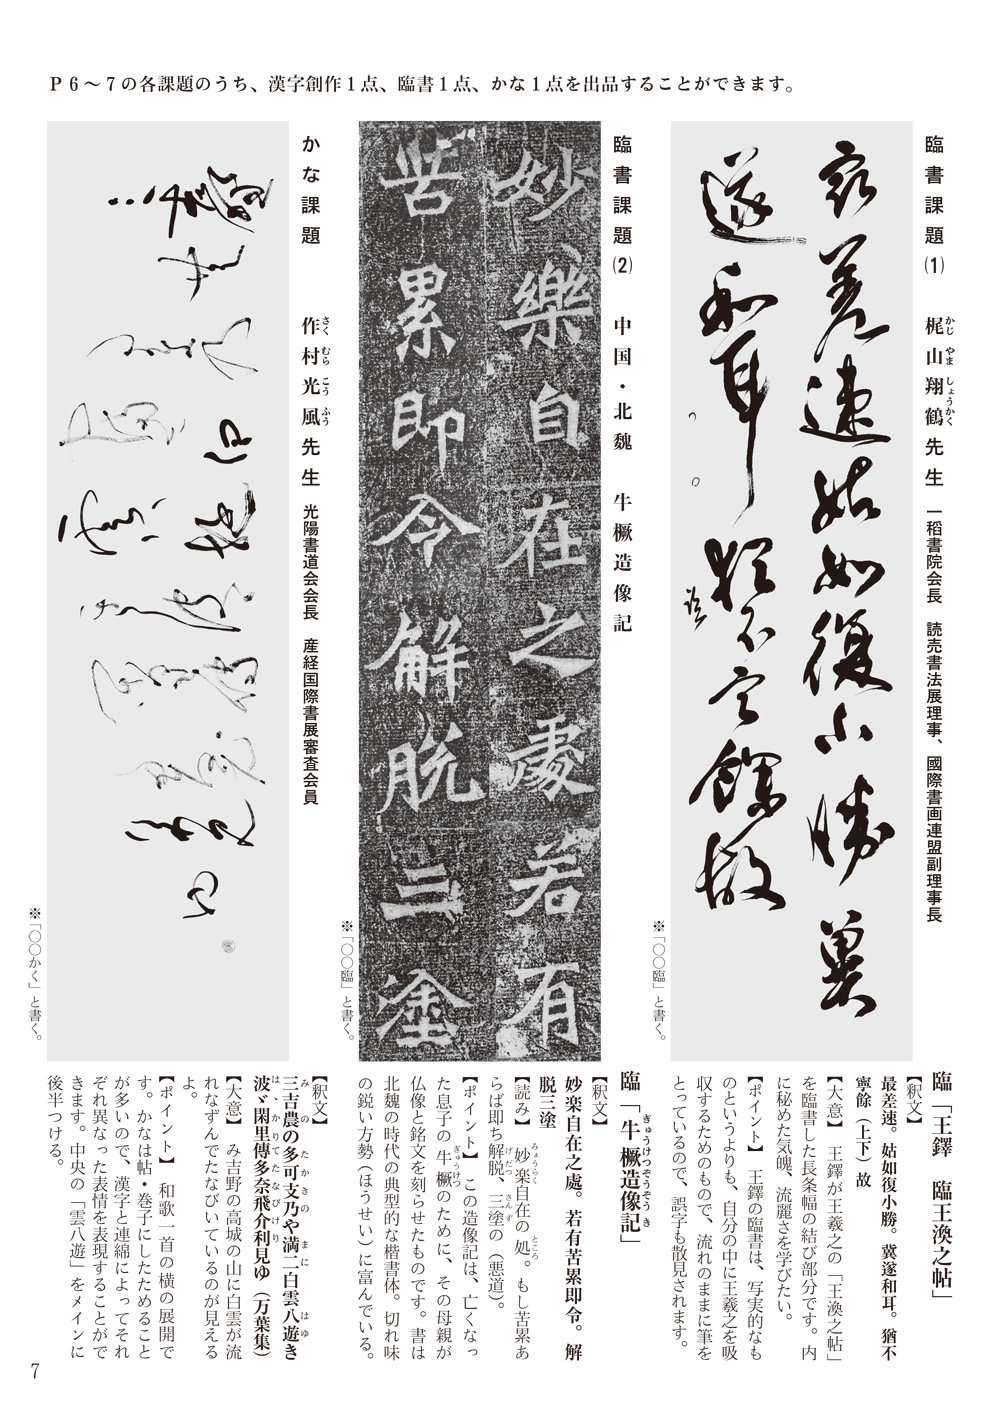 Ｐ６～７の各課題のうち、漢字創作１点、臨書１点、かな１点を出品することができます。
臨書課題⑴　梶山翔鶴先生　一稻書院会長　読売書法展理事、國際書画連盟副理事長
かじ　やま　しょうかく
寂差速姑如復小勝冀
遂和耳猶不寧餘故
臨
※「〇〇臨」と書く。
臨「王鐸　臨王渙之帖」
【釈文】
最差速。姑如復小勝。冀遂和耳。猶不
寧餘（上下）故
【大意】　王鐸が王羲之の「王渙之帖」
を臨書した長条幅の結び部分です。内
に秘めた気魄、流麗さを学びたい。
【ポイント】　王鐸の臨書は、写実的なも
のというよりも、自分の中に王羲之を吸
収するためのもので、流れのままに筆を
とっているので、誤字も散見されます。
臨書課題⑵　中国・北魏　牛橛造像記
妙樂自在之處若有
苦累即令解脱三塗
※「〇〇臨」と書く。
臨「牛橛造像記」
ぎゅうけつぞうぞうき
【釈文】
妙楽自在之處。若有苦累即令。解
脱三塗
【読み】　妙楽自在の処。もし苦累あ
みょうらく　ところ
らば即ち解脱、三塗の（悪道）。
げだつ　さんず
【ポイント】　この造像記は、亡くなっ
た息子の牛橛のために、その母親が
ぎゅうけつ
仏像と銘文を刻らせたものです。書は
北魏の時代の典型的な楷書体。切れ味
の鋭い方勢（ほうせい）に富んでいる。
かな課題　作村光風先生　光陽書道会会長　産経国際書展審査会員
さく　むら　こう　ふう
※「〇〇かく」と書く。
【釈文】
三吉農の多可支乃や満二白雲八遊き
み　の　たかきの　まに　はゆ
波ゞ閑里傳多奈飛介利見ゆ（万葉集）
は、かりてたなびけり
【大意】　み吉野の高城の山に白雲が流
れなずんでたなびいているのが見える
よ。
【ポイント】　和歌一首の横の展開で
す。かなは帖・巻子にしたためること
が多いので、漢字と連綿によってそれ
ぞれ異なった表情を表現することがで
きます。中央の「雲八遊」をメインに
後半つける。
7